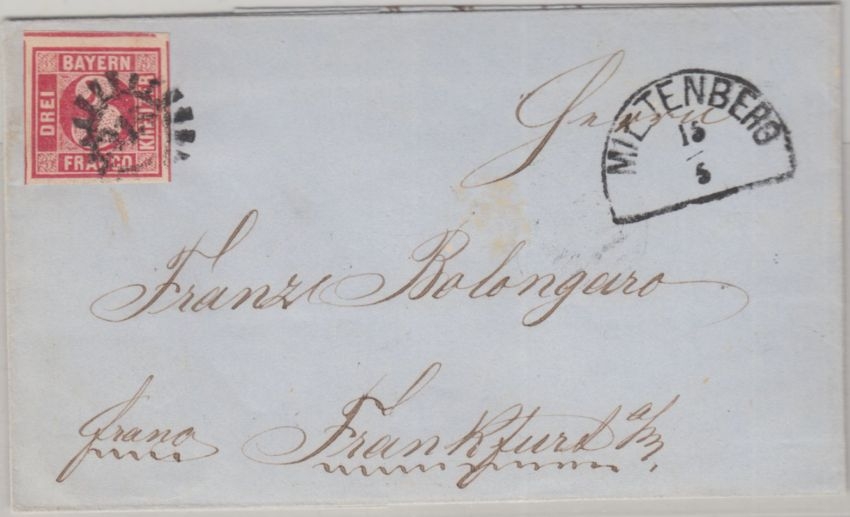 BAYERN
DREI
KREUZER
FRANCO
MILTENBERG
15
5
Herrn
Franz Bolongaro
franco
Frankfurt a/m